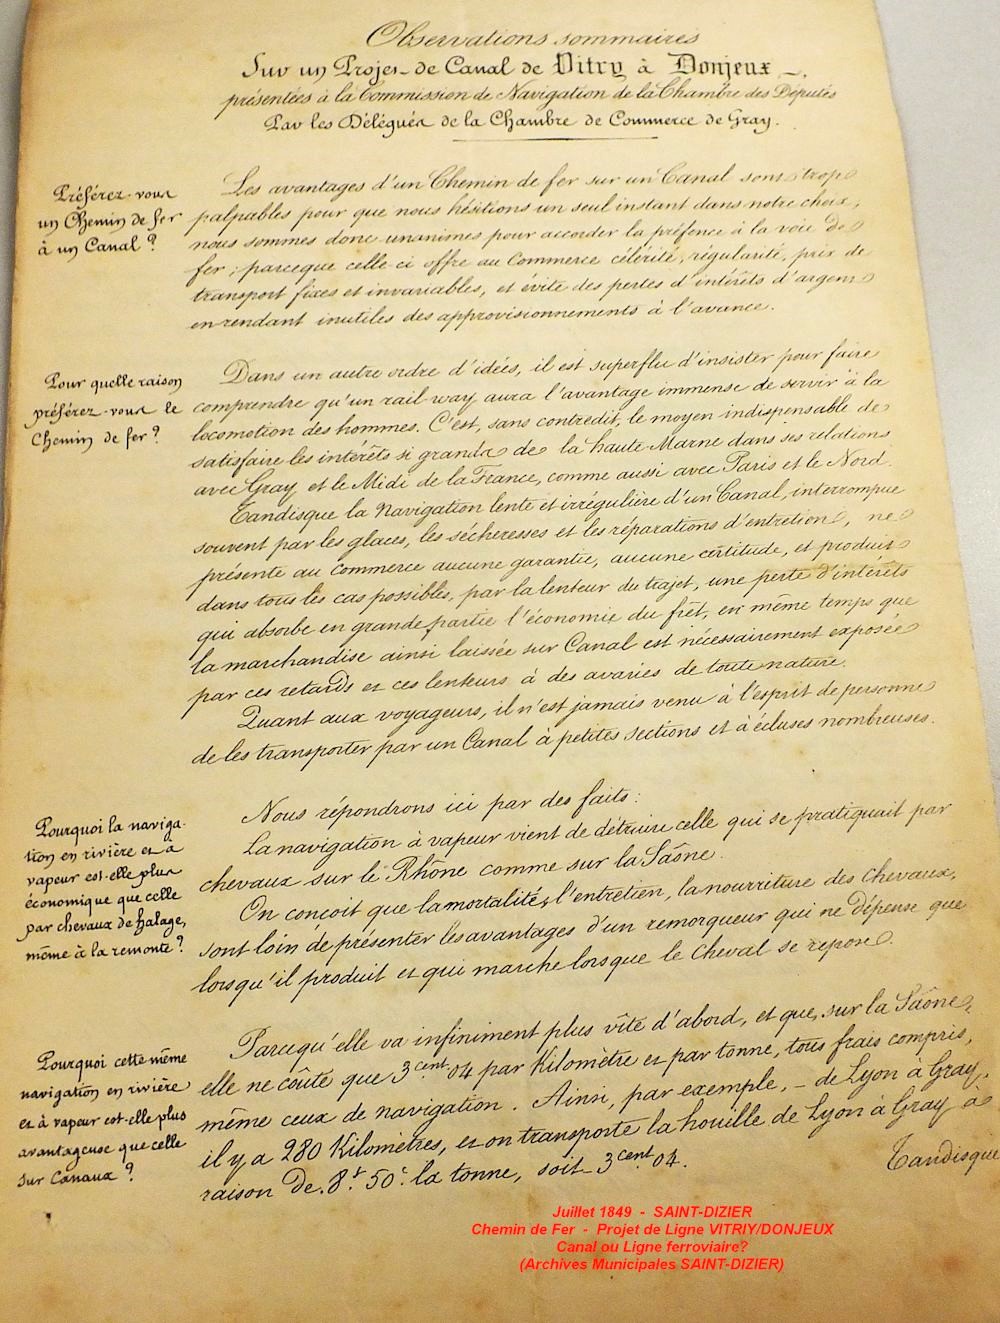 Observations sommaires
Sur un Projet de Canal de Vitry à Donjeux
présentées à la Commission de Navigation de la Chambre des Députés
Par les Délégués de la Chambre de Commerce de Gray.
Préférez-vous
un Chemin de fer
à un Canal ?
Les avantages d'un Chemin de fer sur un Canal sont trop
palpables pour que nous hésitions un seul instant dans notre choix ;
nous sommes donc unanimes pour accorder la préfence à la voie de
fer ; parceque celle-ci offre au Commerce célérité, régularité, prix de
transport fixes et invariables, et évite des pertes d'intérêts d'argent
en rendant inutiles des approvisionnements à l'avance.
Pour quelle raison
préférez-vous le
Chemin de fer ?
Dans un autre ordre d'idées, il est superflu d'insister pour faire
comprendre qu'un rail-way aura l'avantage immense de servir à la
locomotion des hommes. C'est, sans contredit, le moyen indispensable de
satisfaire les intérêts si grands de la haute Marne dans ses relations
avec Gray et le Midi de la France, comme aussi avec Paris et le Nord.
Tandisque la Navigation lente et irrégulière d'un Canal, interrompue
souvent par les glaces, les sécheresses et les réparations d'entretien, ne
présente au commerce aucune garantie, aucune certitude, et produit
dans tous les cas possibles, par la lenteur du trajet, une perte d'intérêts
qui absorbe en grande partie l'économie du frêt, en même temps que
la marchandise ainsi laissée sur Canal est nécessairement exposée
par ces retards et ces lenteurs à des avaries de toute nature.
Quant aux voyageurs, il n'est jamais venu à l'esprit de personne
de les transporter par un Canal à petites sections et à écluses nombreuses.
Pourquoi la naviga-
tion en rivière et à
vapeur est-elle plus
économique que celle
par chevaux de halage,
même à la remonte ?
Nous répondrons ici par des faits :
La navigation à vapeur vient de détruire celle qui se pratiquait par
chevaux sur le Rhône comme sur la Saône.
On conçoit que la mortalité, l'entretien, la nourriture des chevaux,
sont loin de présenter les avantages d'un remorqueur qui ne dépense que
lorsqu'il produit et qui marche lorsque le cheval se repose.
Pourquoi cette même
navigation en rivière
et à vapeur est-elle plus
avantageuse que celle
sur Canaux ?
Parcequ'elle va infiniment plus vîte d'abord, et que, sur la Saône,
elle ne coûte que 3 cent 04 par Kilomètre et par tonne, tous frais compris,
même ceux de navigation. Ainsi, par exemple, - de Lyon à Gray,
il y a 280 Kilomètres, et on transporte la houille de Lyon à Gray à
raison de 8f 50c la tonne, soit 3 cent 04.
Tandisque
Juillet 1849 - SAINT-DIZIER
Chemin de Fer - Projet de Ligne VITRIY/DONJEUX
Canal ou Ligne ferroviaire?
(Archives Municipales SAINT-DIZIER)